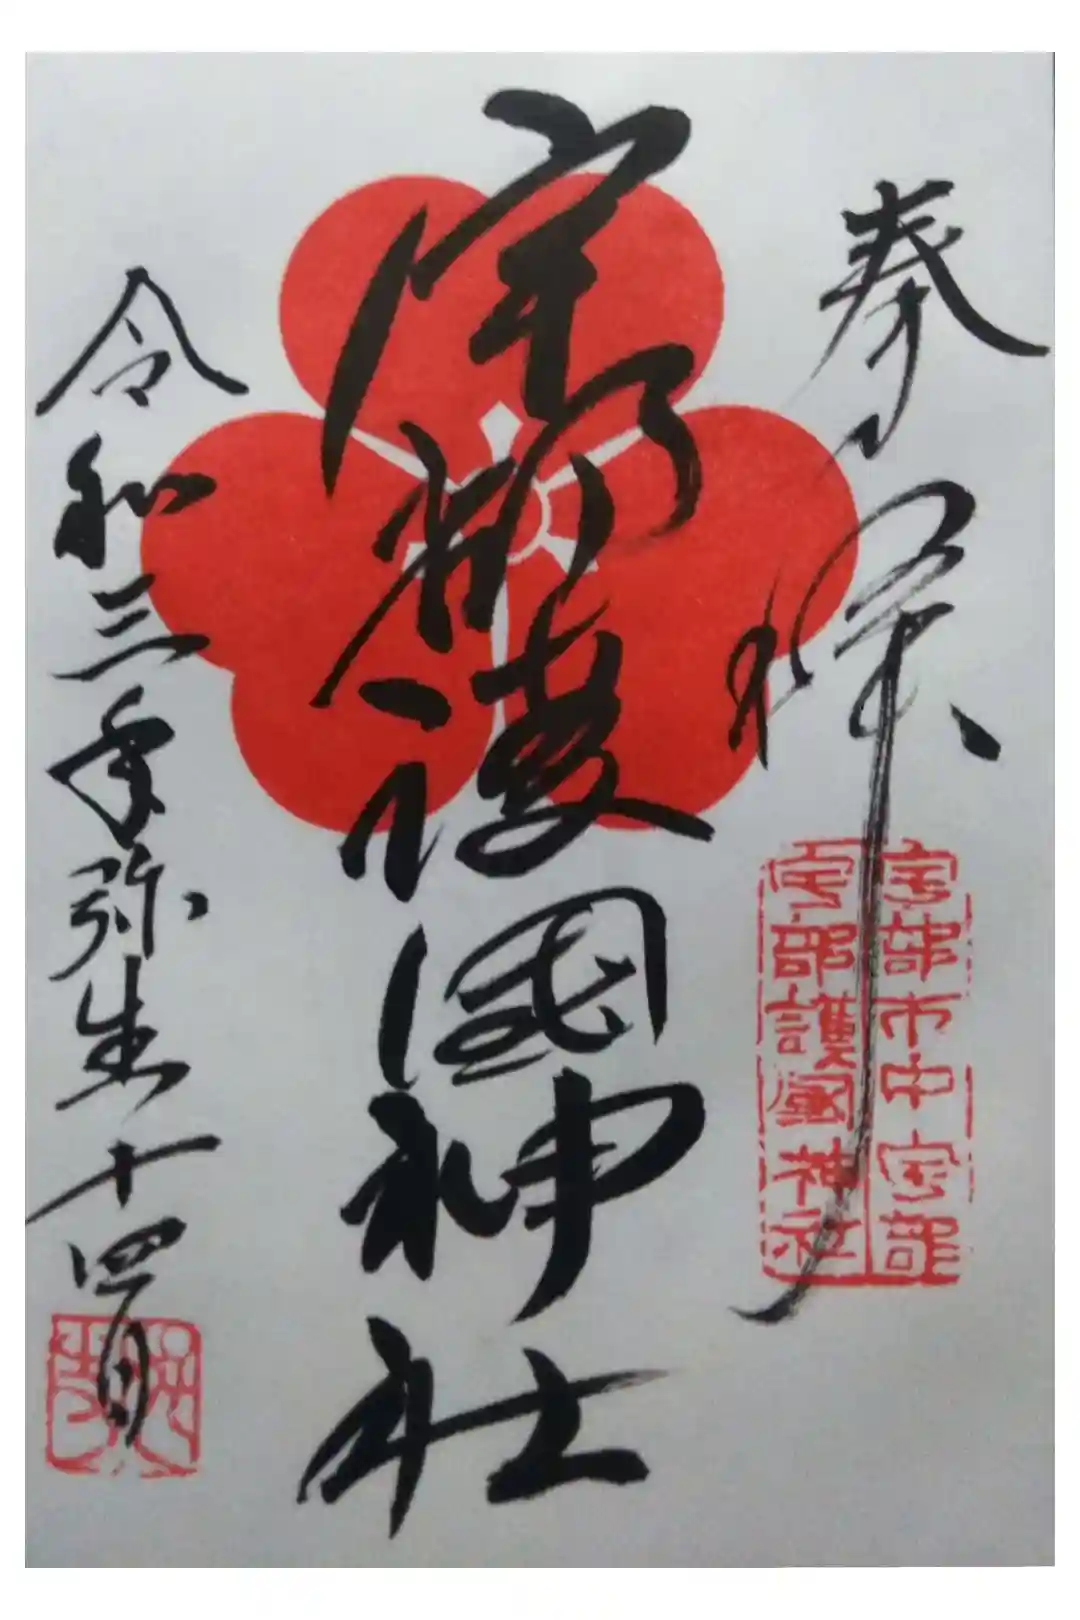 奉拝
宇部市中宇部
宇部護國神社
宇部護國神社
令和三年弥生十四日